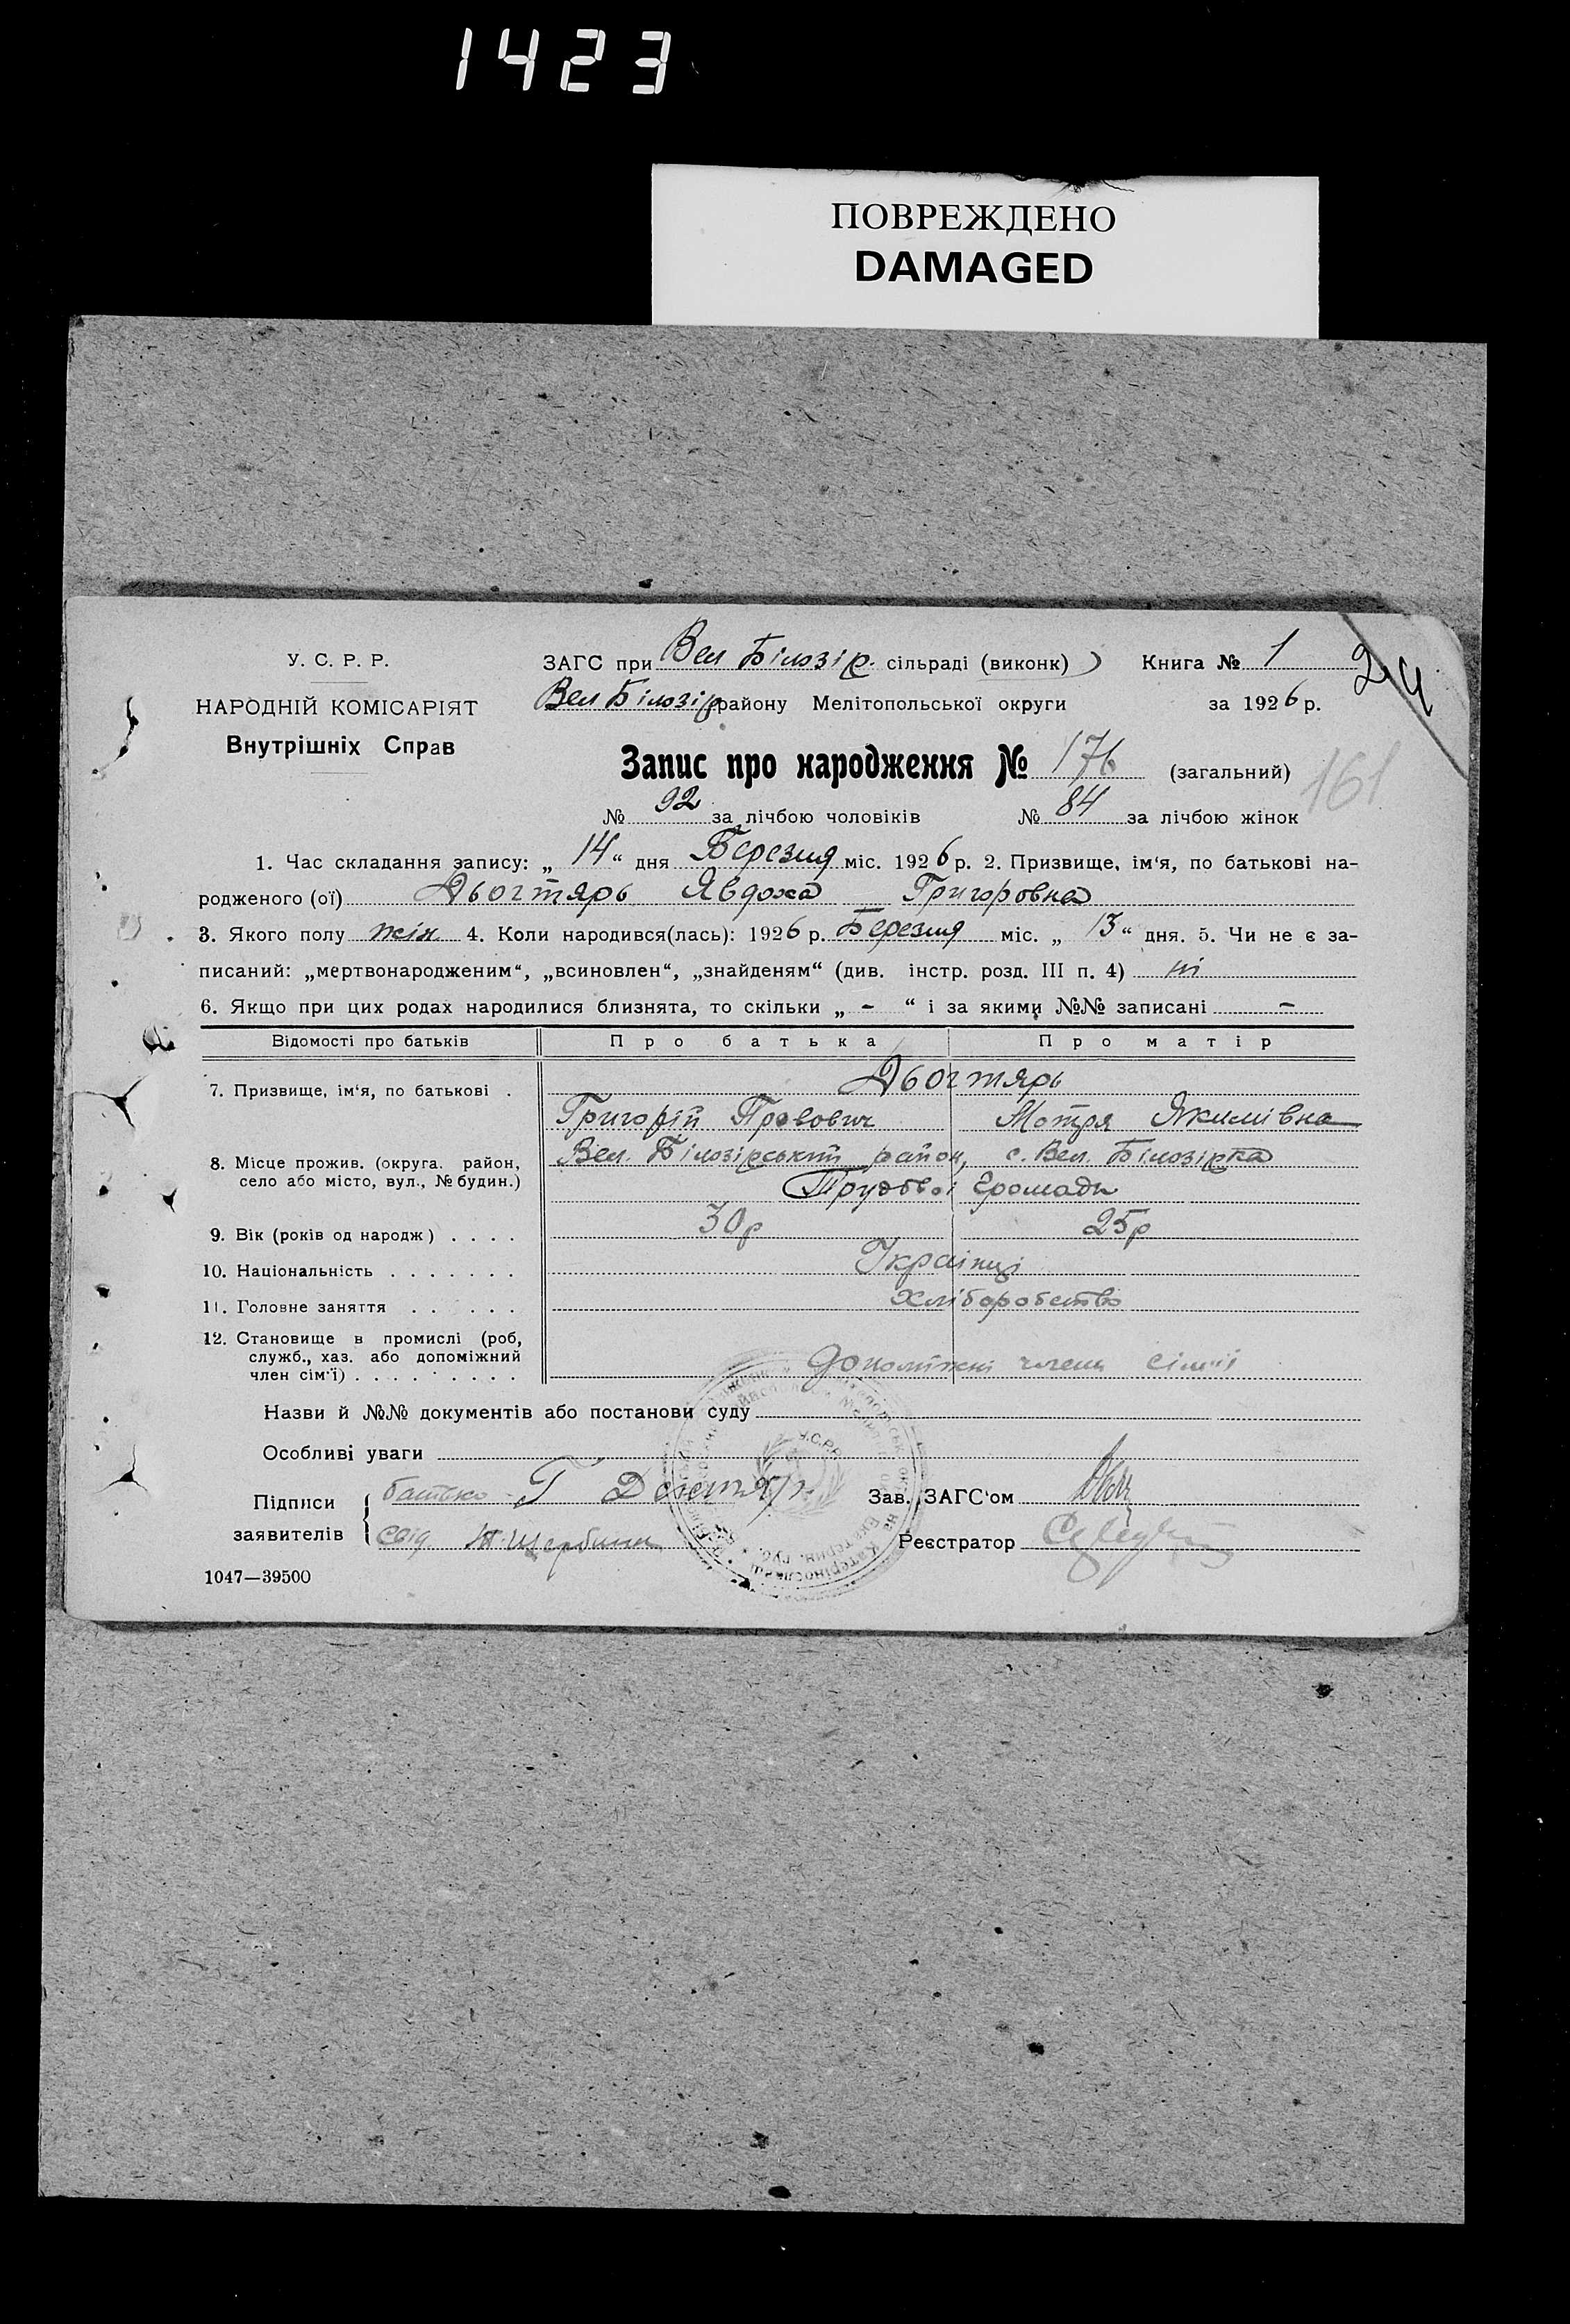 1423
ПОВРЕЖДЕНО
DAMAGED
У. С. Р. Р.
НАРОДНІЙ КОМІСАРІЯТ
Внутрішніх Справ
ЗАГС при Вел Білозір. сільраді (виконк) Книга № 1
24
Вел Білозір району Мелітопольської округи за 1926 р.
Запис про народження № 176 (загальний)
161
№ 92 за лічбою чоловіків № 84 за лічбою жінок
1. Час складання запису: „ 14 “ дня Березня міс. 1926 р. 2. Призвище, ім‘я, по батькові на-
родженого (ої) Дьогтярь Явдоха Григоровна
3. Якого полу жін 4. Коли народився(лась): 1926 р. Березня міс. „ 13 “ дня. 5. Чи не є за-
писаний: „мертвонародженим“, „всиновлен“, „знайденям“ (див. інстр. розд. III п. 4) ні
6. Якщо при цих родах народилися близнята, то скільки „ - “ і за якими №№ записані -
Відомості про батьків Про батька Про матір
7. Призвище, ім‘я, по батькові . Дьогтярь
Григорій Мотря Якимівна
8. Місце прожив. (округа. район, село або місто, вул., № будин.) Вел. Білозірський район, с. Вел. Білозірка
Трудової Громади
9. Вік (років од народж) . . . . 30р 25р
10. Національність . . . . . . . Українці
11. Головне заняття . . . . . . Хліборобство
12. Становище в промислі (роб, служб., хаз. або допоміжний член сім‘ї) . . . . . . . . . допоміжні члени сімї
Назви й №№ документів або постанови суду
Особливі уваги
У.С.Р.Р.
Підписи заявителів
батько Г
свід. Щербина
Зав. ЗАГС‘ом
Реєстратор
1047—39500